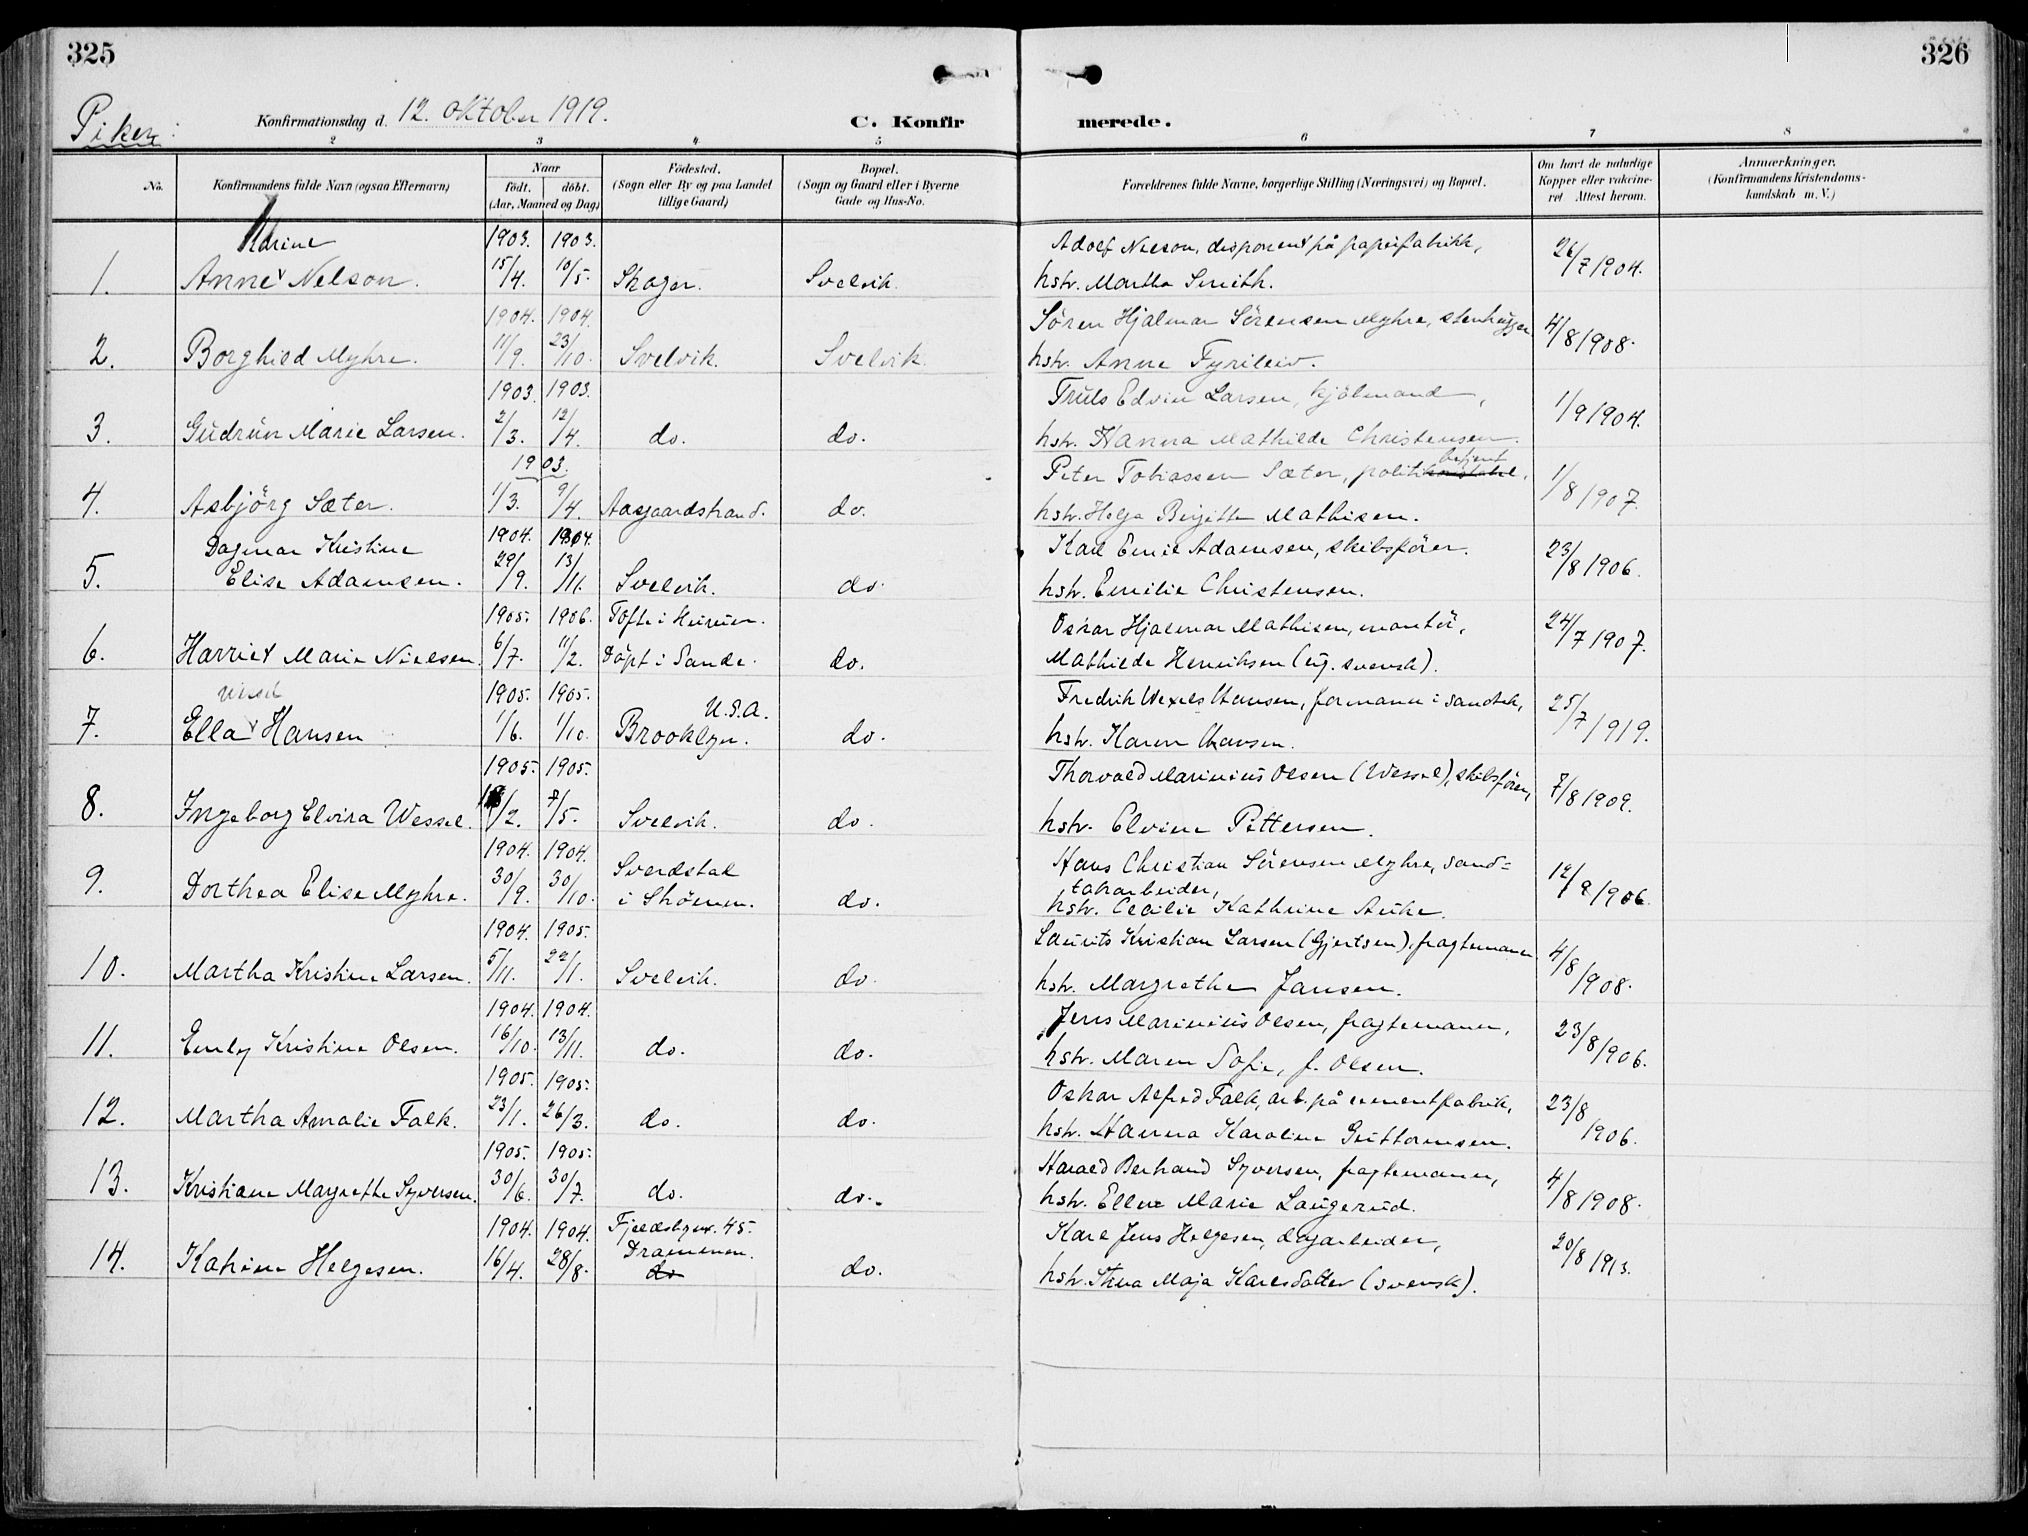 325
326
Piker:
Konfirmationsdag d. 12. oktober 1919.
C. Konfir
merede.
2 3 4 5 6 7 8 9
No.
Konfirmandens fulde Navn (ogsaa Efternavn)
Naar
født. døbt.
(Aar, Maaned og Dag)
Födested.
(Sogn eller By og paa Landet
tillige Gaard)
Bopæl.
(Sogn og Gaard eller i Byerne
Gade og Hus-No.
Forældrenes fulde Navne, borgerlige Stilling (Næringsvei) og Bopæl.
Om havt de naturlige
Kopper eller vakcine-
ret Attest herom.
Anmærkninger.
(Konfirmandens Kristendoms-
kundskab m. V.)
Adrine 1903. 1903. Adolf Nelson, disponent på papirfabrikk,
1. Anne Nelson. 15/4. 10/5. Skoger. Svelvik. hstr. Martha Smith. 26/7 1904.
1904. 1904. Søren Hjalmar Sörensen Myhre, stenhugger
2. Borghild Myhre. 11/9. 23/10. Svelvik. Svelvik. hstr. Anne Fyrileiv. 4/8 1908.
1903. 1903. Truls Edvin Larsen, kjölmand,
3. Gudrun Marie Larsen. 2/3. 12/4. do. do. hstr. Hanna Mathilde Christensen. 1/9 1904.
1903. Peter Tobiassen Sæter, politikonstabel, betjent
4. Asbjörg Sæter. 1/3. 9/4. Aasgaardstrand. do. hstr. Helga Birgitte Mathisen. 1/8 1907.
Dagmar Kristine 1904. 1904. Karl Emil Adamsen, skibsförer.
5. Elise Adamsen. 29/9. 13/11. Svelvik. do. hstr. Emilie Christensen. 23/8 1906.
1905. 1906. Tofte i Hurum. Oskar Hjalmar Mathisen, montör,
6. Harriet Marie Nielsen. 6/7. 11/2. Döpt i Sande. do. Mathilde Henriksen (ug. svensk). 24/7 1907.
Wessel 1905. 1905. U.S.A. Fredrik Wexels Hansen, formann i sandtak,
7. Ella Hansen 1/6. 1/10. Brooklyn. do. hstr. Karen Hansen. 25/7 1919.
1905. 1905. Thorvald Marinius Olsen (Wessel), skibsförer,
8. Ingeborg Elvira Wessel. /2. 7/5. Svelvik. do. hstr. Elvine Pettersen. 7/8 1909.
1904. 1904. Sverdstad Hans Christian Sörensen Myhre, sand=
9. Dorthea Elise Myhre. 30/9. 30/10. i Strömm. do. takarbeider,
hstr. Cecilie Kathrine Auke. 12/8 1906.
1904. 1905. Laurits Kristian Larsen (Gjertsen), fragtemann
10. Martha Kristine Larsen. 5/11. 22/1. Svelvik. do. hstr. Margrethe Jansen. 4/8 1908.
1904. 1904. Jens Marinius Olsen, fragtemann,
11. Emly Kristine Olsen. 16/10. 13/11. do. do. hstr. Maren Sofie, f. Olsen. 23/8 1906.
1905. 1905. Oskar Alfred Falk, arb. på cementfabrik,
12. Martha Amalie Falk. 23/1. 26/3. do. do. hstr. Hanna Karoline Guttormsen. 23/8 1906.
1905. 1905. Harald Berhard Syversen, fragtemann,
13. Kristiane Margrethe Syversen. 30/6. 30/7. do. do. hstr. Ellen Marie Laugerud. 4/8 1908.
1904. 1904. Fjeldsbyen. 45. Karl Jens Helgesen, dagarbeider,
14. Katrine Helgesen. 16/4. 28/8. Drammen. do do. hstr. Maja Karlsdatter (svensk). 20/8 1913.